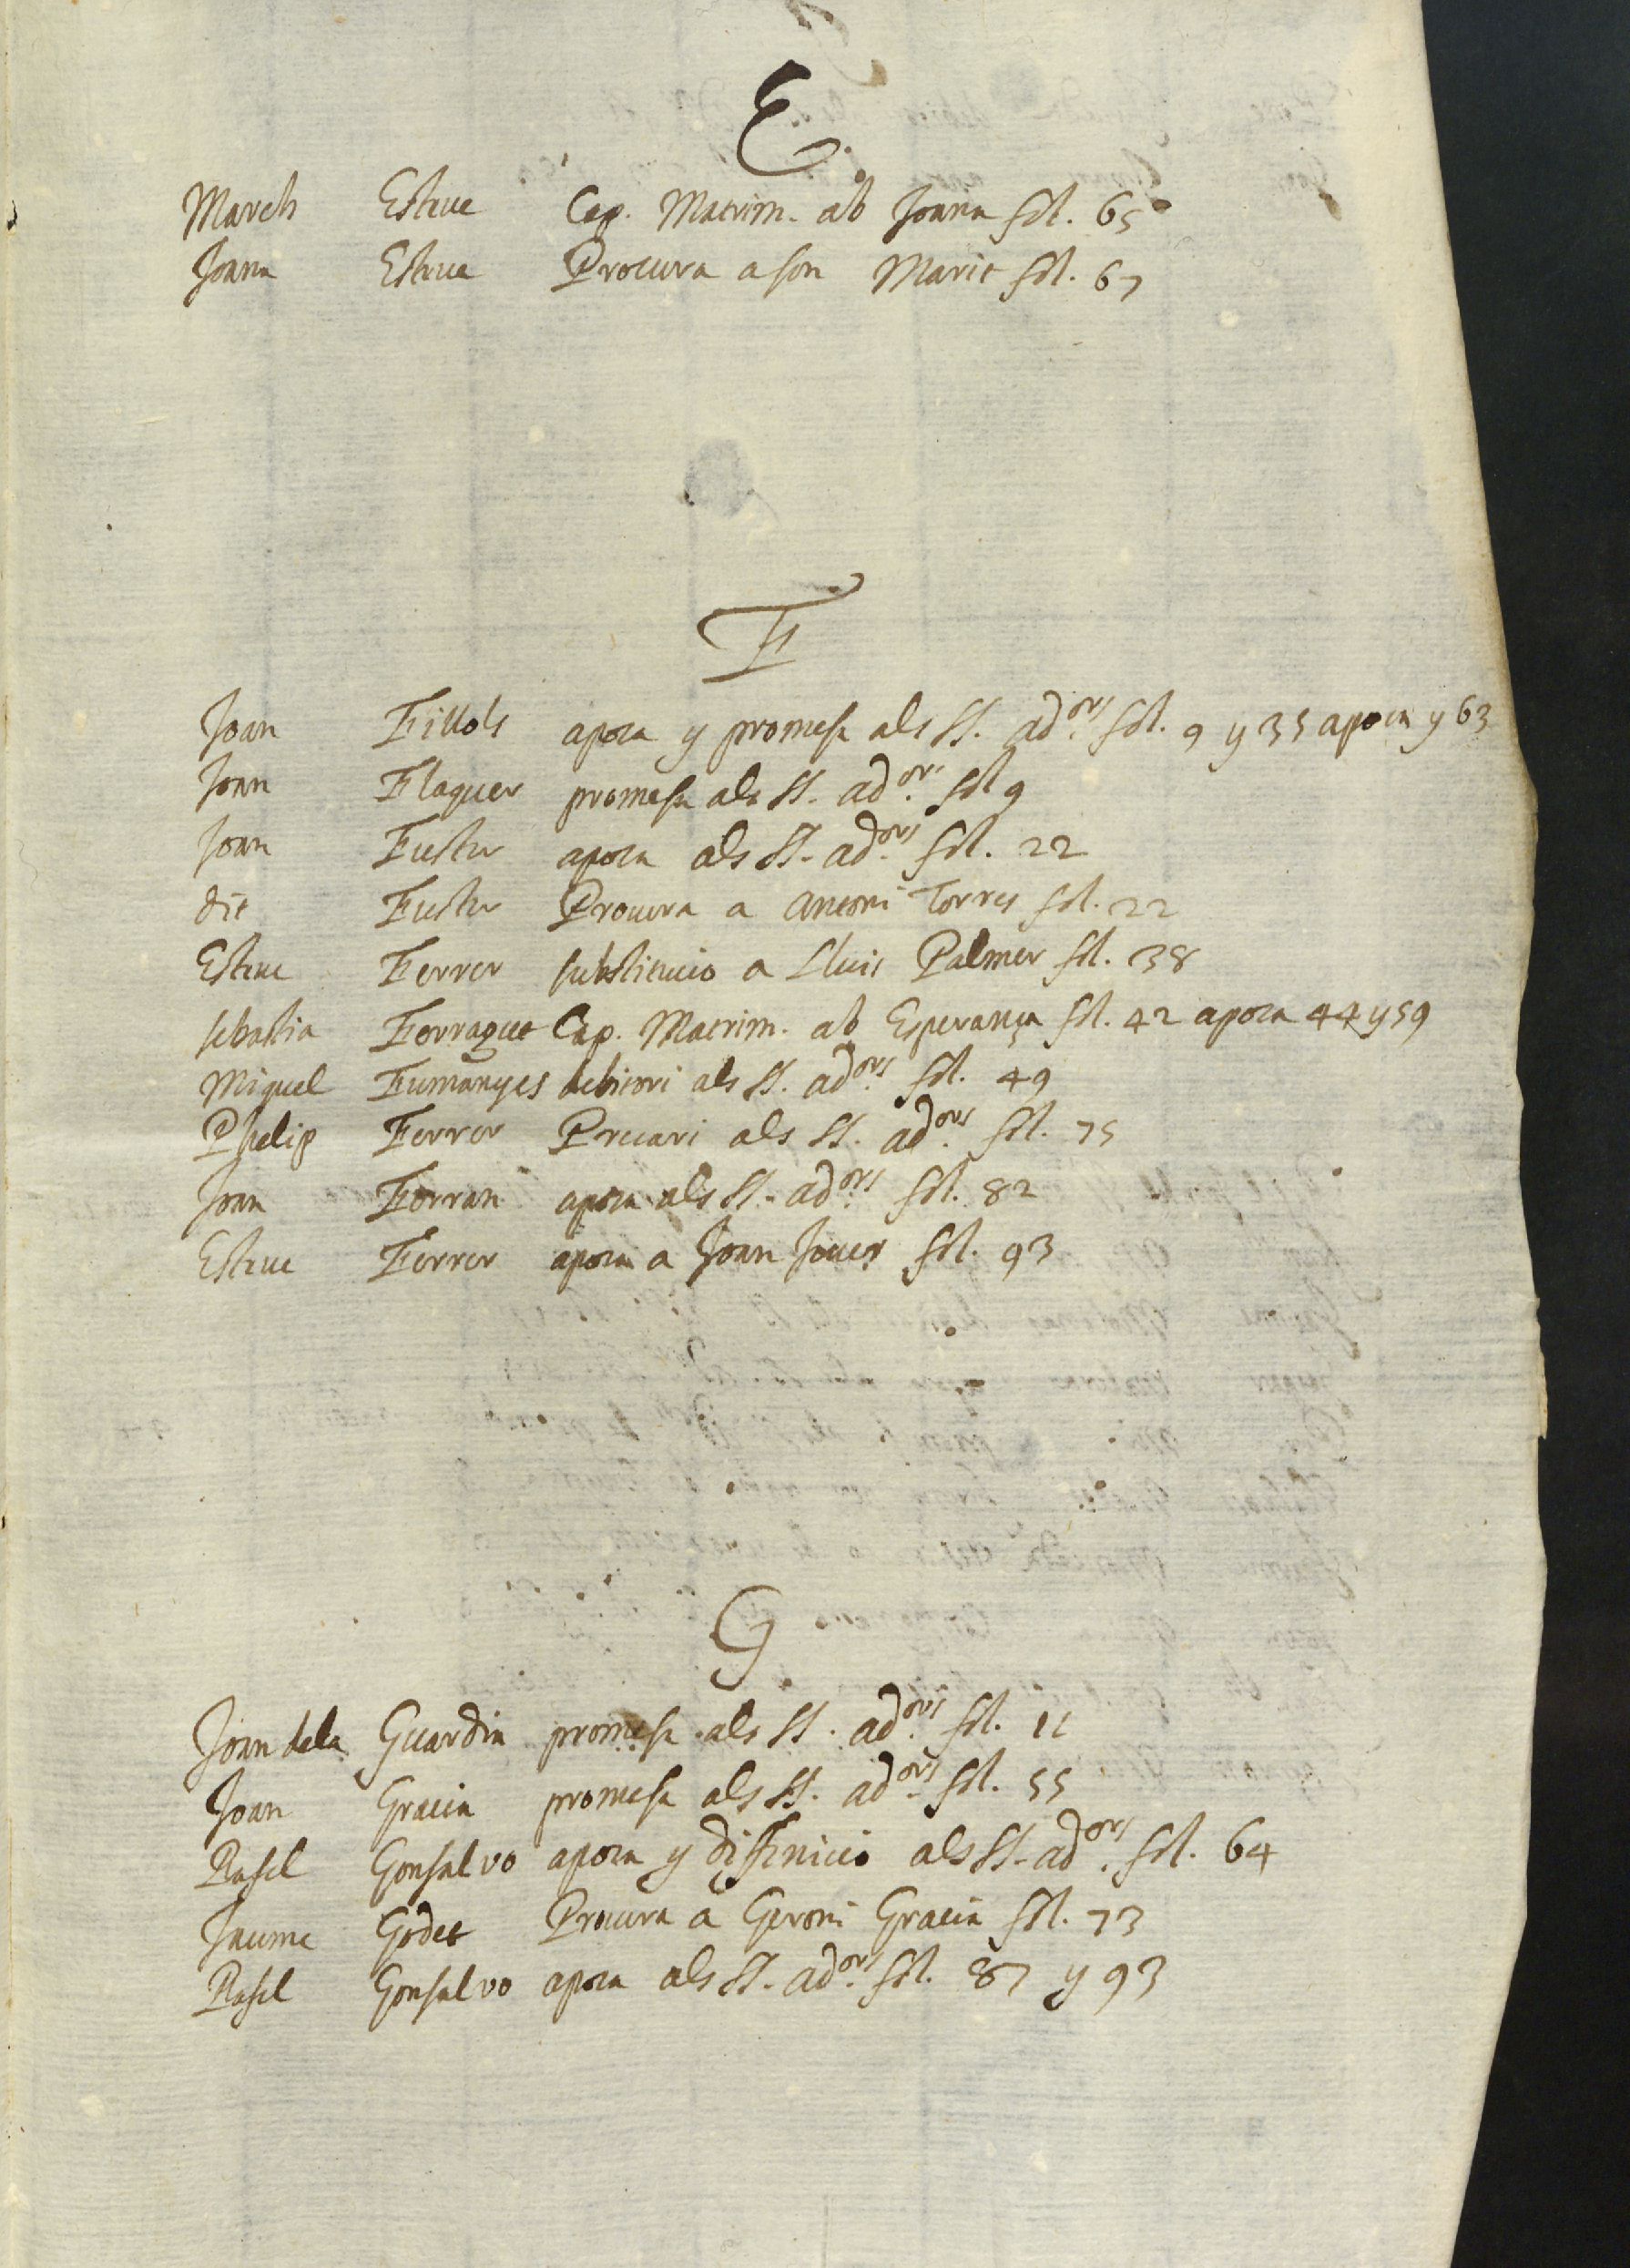 E.
March Esteue Cap. Matrim. ab Joana fol. 65
Joana Esteue Procura a son Marit fol. 67
F
Joan Fillols apoca y promesa als SS. ad.ors fol. 9 y 35 apoca y 63
Joan Flaquer promesa als SS. ad.ors fol 9
Joan Fuster apoca als SS. ad.ors fol. 22
dit Fuster Procura a Antoni Torres fol. 22
Esteue Ferrer substitucio a Lluis Palmer fol. 38
sebastia Ferragut Cap. Matrim. ab Esperança fol. 42 apoca 44 y 59
Miquel Fumanyes debitori als SS. ad.ors fol. 49
Phelip Ferrer Precari als SS. ad.ors fol. 75
Joan Ferran apoca als SS. ad.ors fol. 82
Esteue Ferrer apoca a Joan Jouer fol. 93
G
Joan dela Guardia promesa als SS. ad.ors fol. 11
Joan Gracia promesa als SS. ad.ors fol. 55
Rafel Gonsalvo apoca y diffinicio als SS. ad.ors fol. 64
Jaume Godet Procura a Geroni Gracia fol. 73
Rafel Gonsalvo apoca als SS. ad.ors fol. 87 y 93